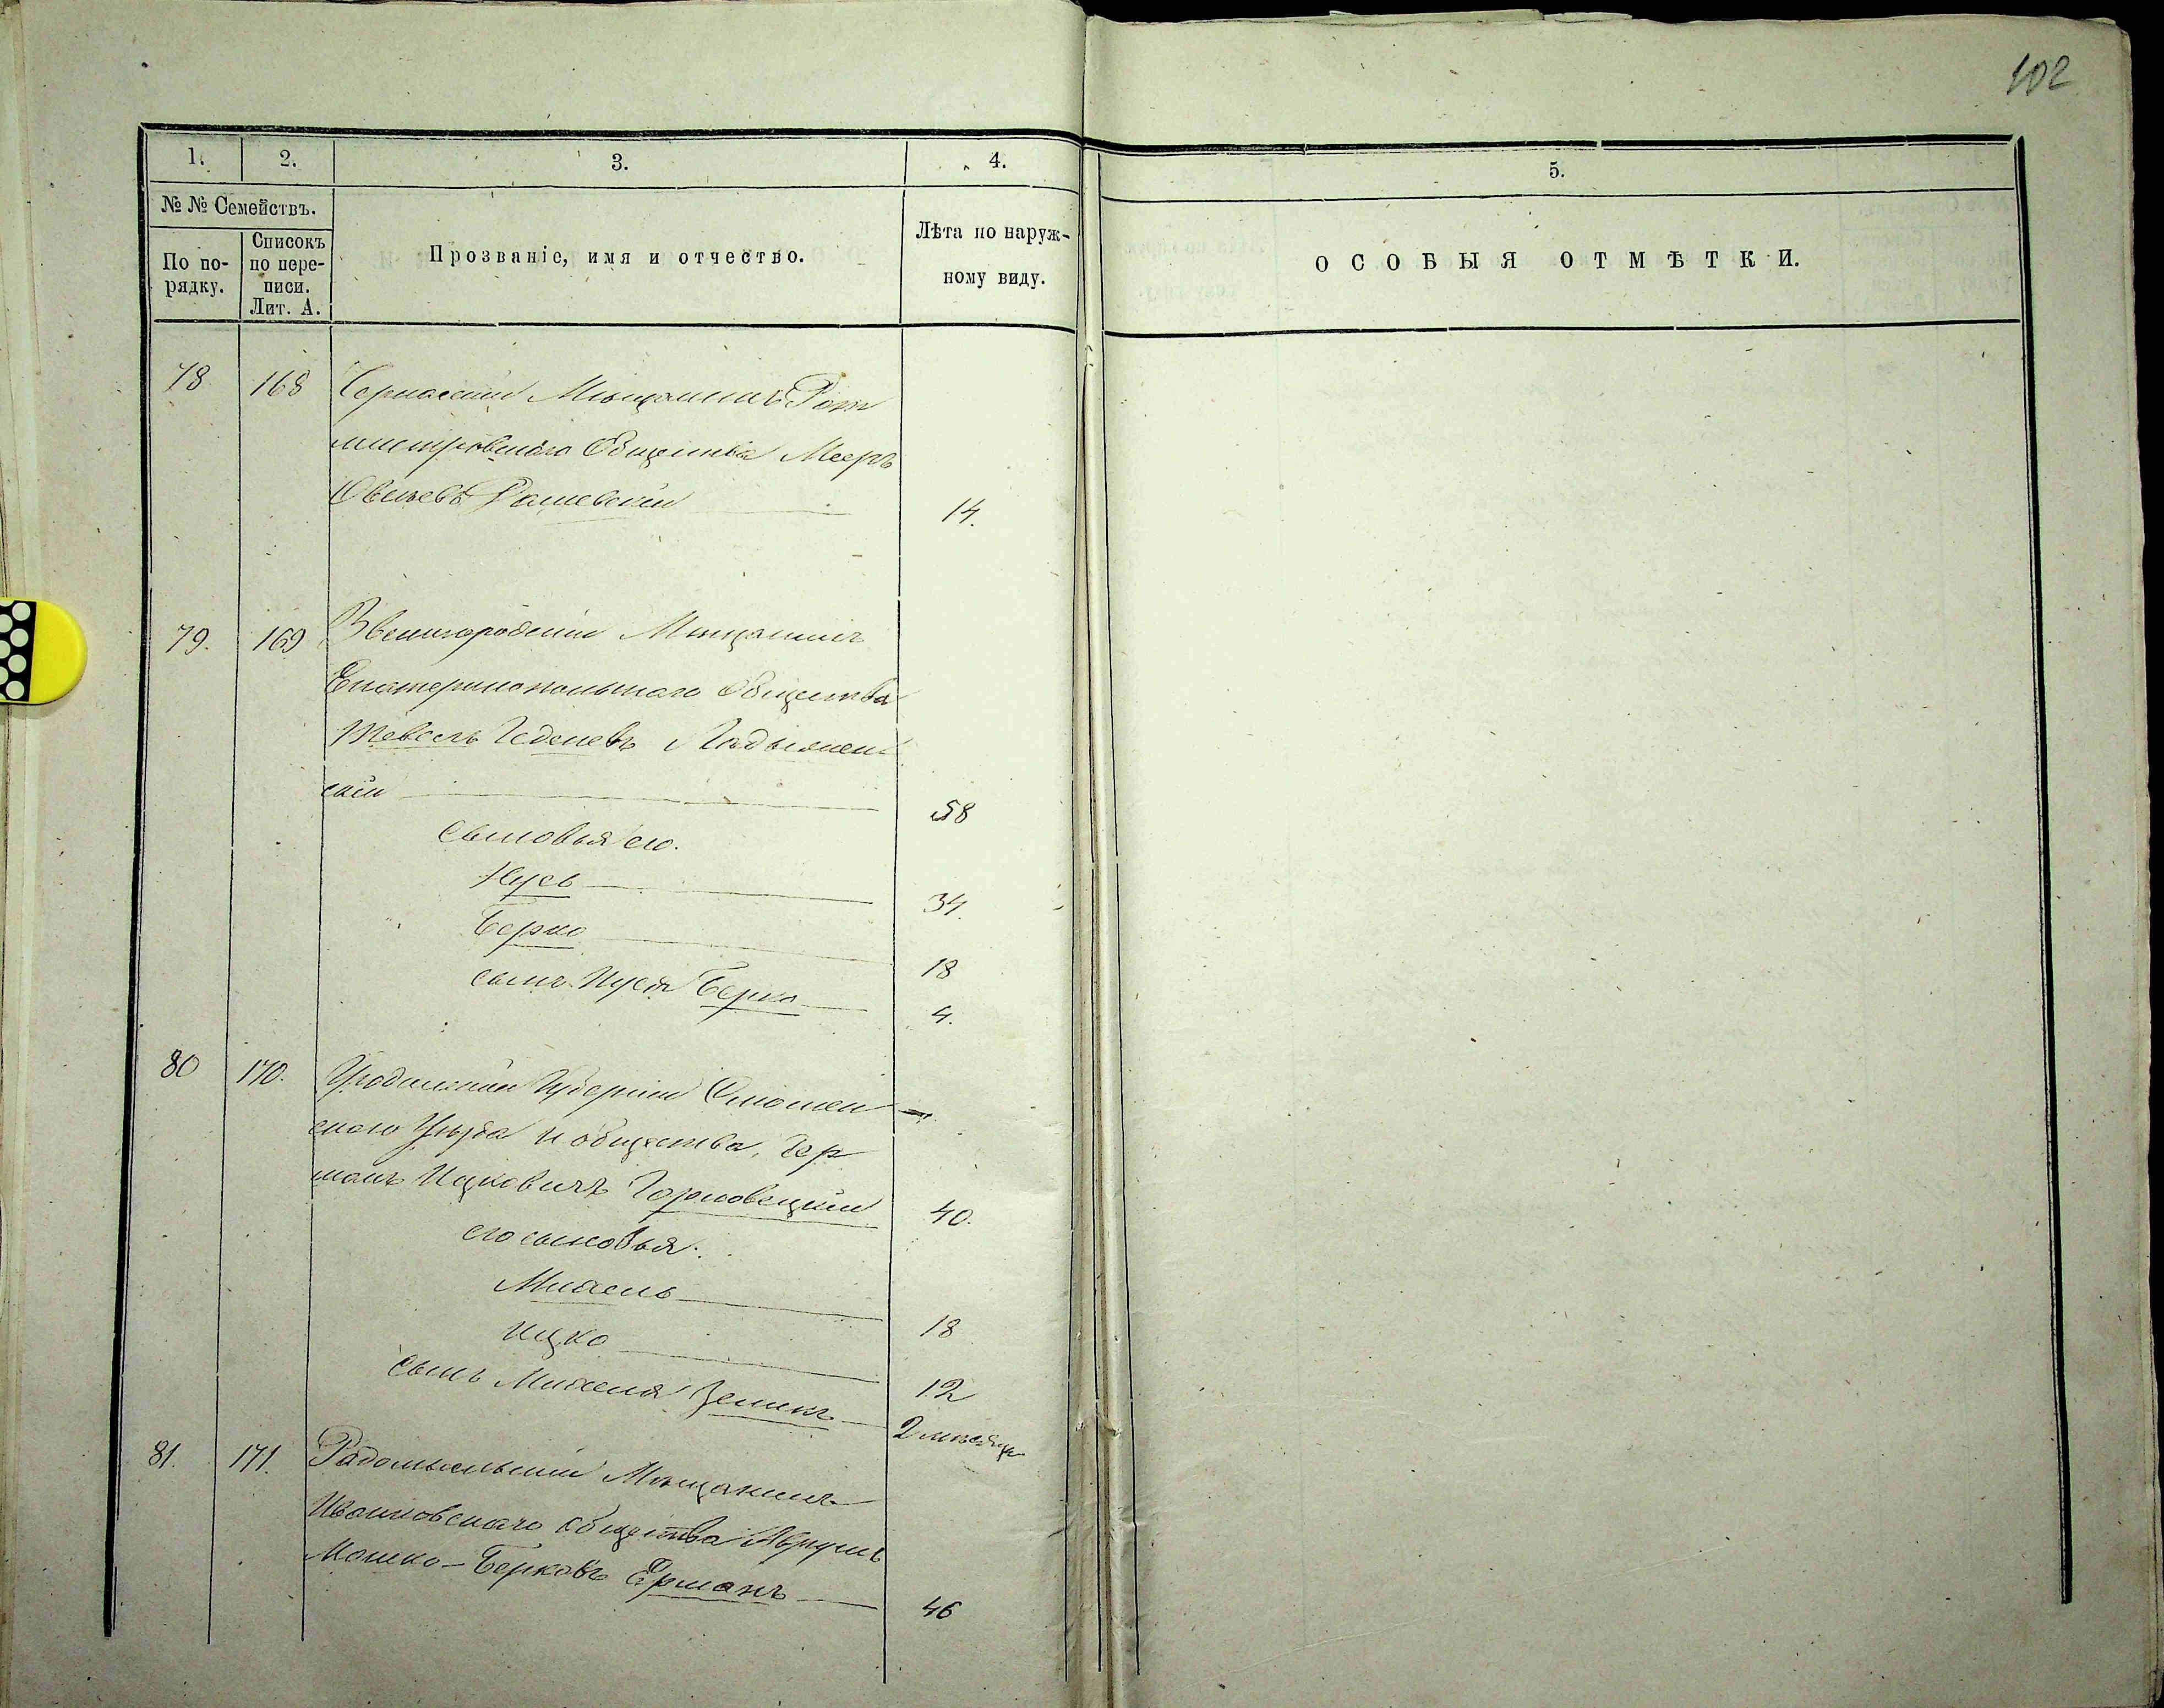 102
1. 2. 3. 4. 5.
№ № Семействъ.
По по-
рядку.
Списокъ
по пере-
писи.
Лит. А.
Прозваніе, имя и отчество.
Лѣта по наруж-
ному виду.
ОСОБЫЯ ОТМѢТКИ.
78 168 Мѣщанинъ Рот
мистровскаго Общества Мееръ
14.
79. 169 Звенигородскій Мѣщанинъ
Екатеринопольскаго Общества
Тевель
скій 58
Сыновья его.
Нусь 34.
Берко 18
сынъ Нуся Берко 4.
80 170. Гродненской Губерніи Слоним
скаго Уѣзда и общества, Гер
манъ Ицковичъ 40.
его сыновья:
Михель 18
Ицко 12
сынъ Михеля Зеликъ 2 мѣсяца
81. 171. Радомысльскій Мѣщанинъ
Иванковскаго общества Аврумъ
Мошко-Берковъ Ерманъ 46